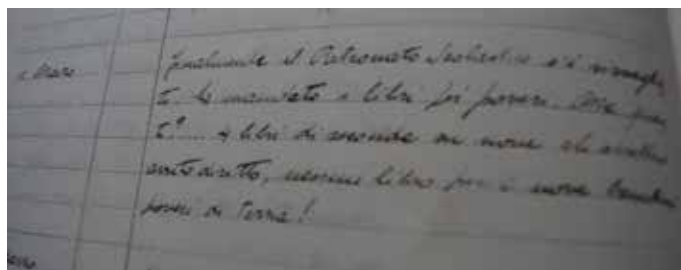 Marzo
finalmente il Patronato Scolastico s'è risveglia
to. Ha mandato i libri pei poveri. Ma quan
ti?.... 4 libri di seconda su nove che avrebbero
diritto, nessun libro per i nove bambini
poveri di terza!